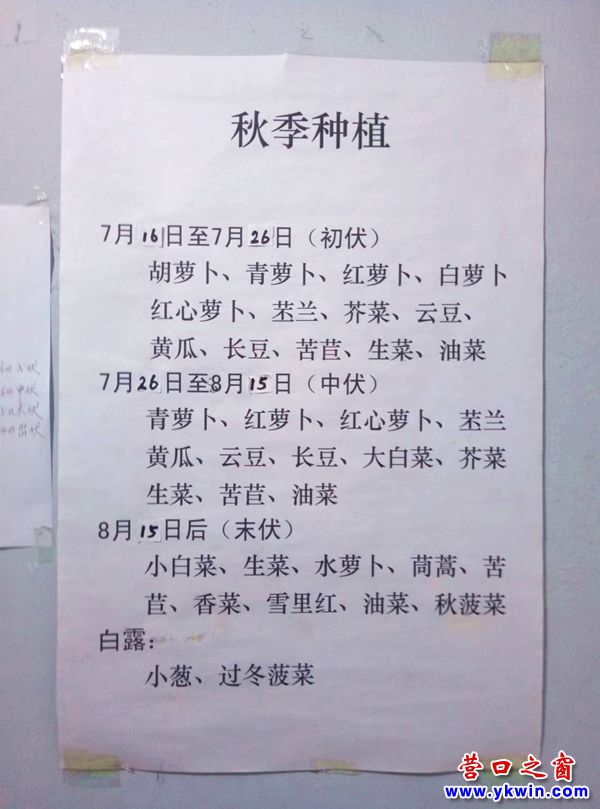 秋季种植
7月16日至7月26日（初伏）
胡萝卜、青萝卜、红萝卜、白萝卜
红心萝卜、苤兰、芥菜、云豆、
黄瓜、长豆、苦苣、生菜、油菜
7月26日至8月15日（中伏）
青萝卜、红萝卜、红心萝卜、苤兰
黄瓜、云豆、长豆、大白菜、芥菜
生菜、苦苣、油菜
8月15日后（末伏）
小白菜、生菜、水萝卜、茼蒿、苦
苣、香菜、雪里红、油菜、秋菠菜
白露：
小葱、过冬菠菜
6日入伏
6日中伏
5日末伏
日出伏
营口之窗
www.ykwin.com